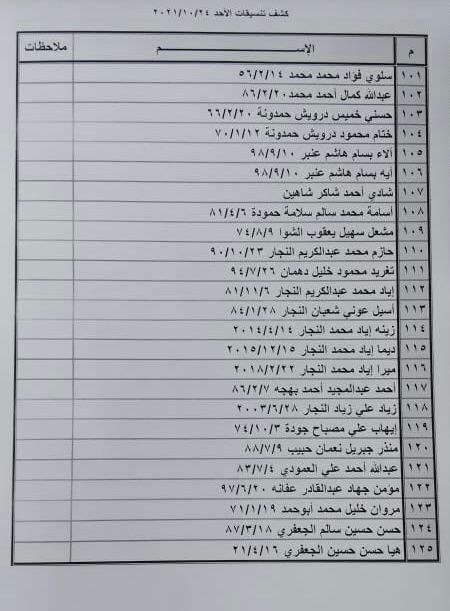 كشف تنسيقات الأحد ٢٠٢١/١٠/٢٤
م الإســـــم ملاحظات
١٠١ سلوي فؤاد محمد محمد ٥٦/٢/١٤
١٠٢ عبدالله كمال أحمد محمد ٨٦/٢/٢٠
١٠٣ حسني خميس درويش حمدونة ٦٦/٢/٢٠
١٠٤ ختام محمود درويش حمدونة ٧٠/١/١٢
١٠٥ آلاء بسام هاشم عنبر ٩٨/٩/١٠
١٠٦ أيه بسام هاشم عنبر ٩٨/٩/١٠
١٠٧ شادي أحمد شاكر شاهين
١٠٨ أسامة محمد سالم سلامة حمودة ٨١/٤/٦
١٠٩ مشعل سهيل يعقوب الشوا ٧٤/٨/٩
١١٠ حازم محمد عبدالكريم النجار ٩٠/١٠/٢٣
١١١ تغريد محمود خليل دهمان ٩٤/٧/٢٦
١١٢ إياد محمد عبدالكريم النجار ٨١/١١/٦
١١٣ أسيل عوني شعبان النجار ٨٤/١/٢٨
١١٤ زينه إياد محمد النجار ٢٠١٤/٤/١٤
١١٥ ديما إياد محمد النجار ٢٠١٥/١٢/١٥
١١٦ ميرا إياد محمد النجار ٢٠١٨/٢/٢٢
١١٧ أحمد عبدالمجيد أحمد بهجه ٨٦/٢/٧
١١٨ زياد علي زياد النجار ٢٠٠٣/٦/٢٨
١١٩ إيهاب علي مصباح جودة ٧٤/١٠/٣
١٢٠ منذر جبريل نعمان حبيب ٨٨/٧/٩
١٢١ عبدالله أحمد علي العمودي ٨٣/٧/٤
١٢٢ مؤمن جهاد عبدالقادر عفانه ٩٧/٦/٢٠
١٢٣ مروان خليل محمد أبوحمد ٧١/١/١٩
١٢٤ حسن حسين سالم الجعفري ٨٧/٣/١٨
١٢٥ هيا حسن حسين الجعفري ٢١/٤/١٦